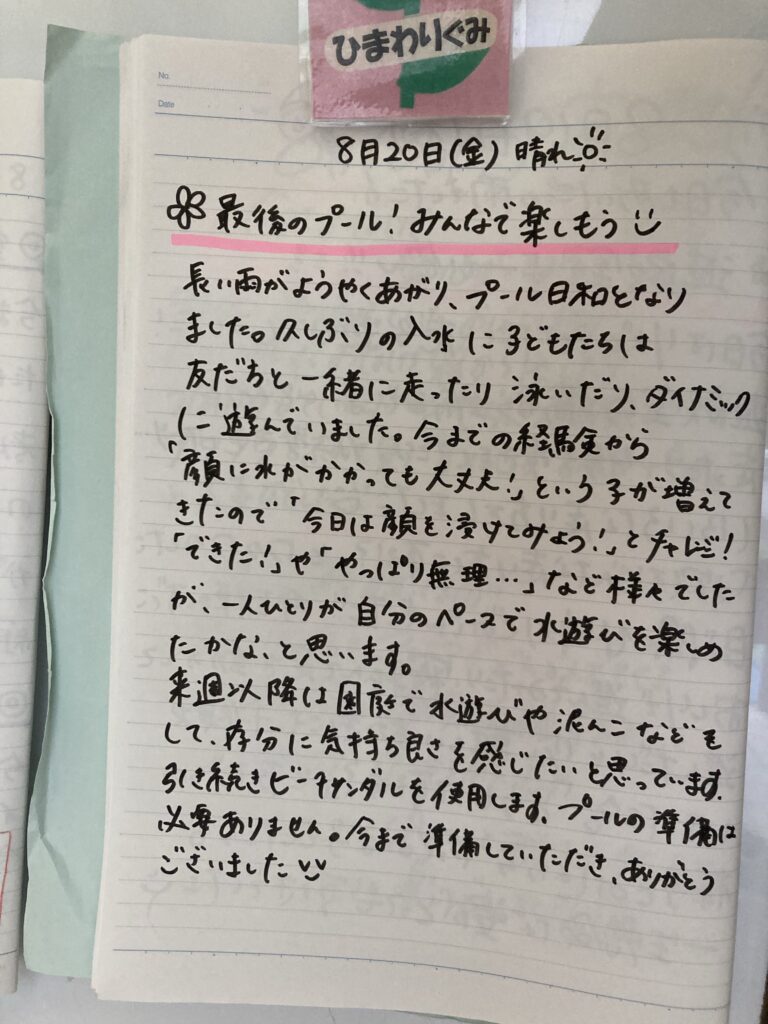 ひまわりぐみ
No.
Date
8月20日(金) 晴れ
最後のプール!みんなで楽しもう
長い雨がようやくあがり、プール日和となり
ました。久しぶりの入水に子どもたちは
友だちと一緒に走ったり泳いだり、ダイナミック
に遊んでいました。今までの経験から
「顔に水がかかっても大丈夫!」という子が増えて
きたので「今日は顔を浸けてみよう!」とチャレンジ!
「できた!」や「やっぱり無理…」など様々でした
が、一人ひとりが自分のペースで水遊びを楽しめ
たかな、と思います。
来週以降は園庭で水遊びや泥んこなどを
して、存分に気持ち良さを感じたいと思っています。
引き続きビーチサンダルを使用します、プールの準備は
必要ありません。今まで準備していただき、ありがとう
ございました